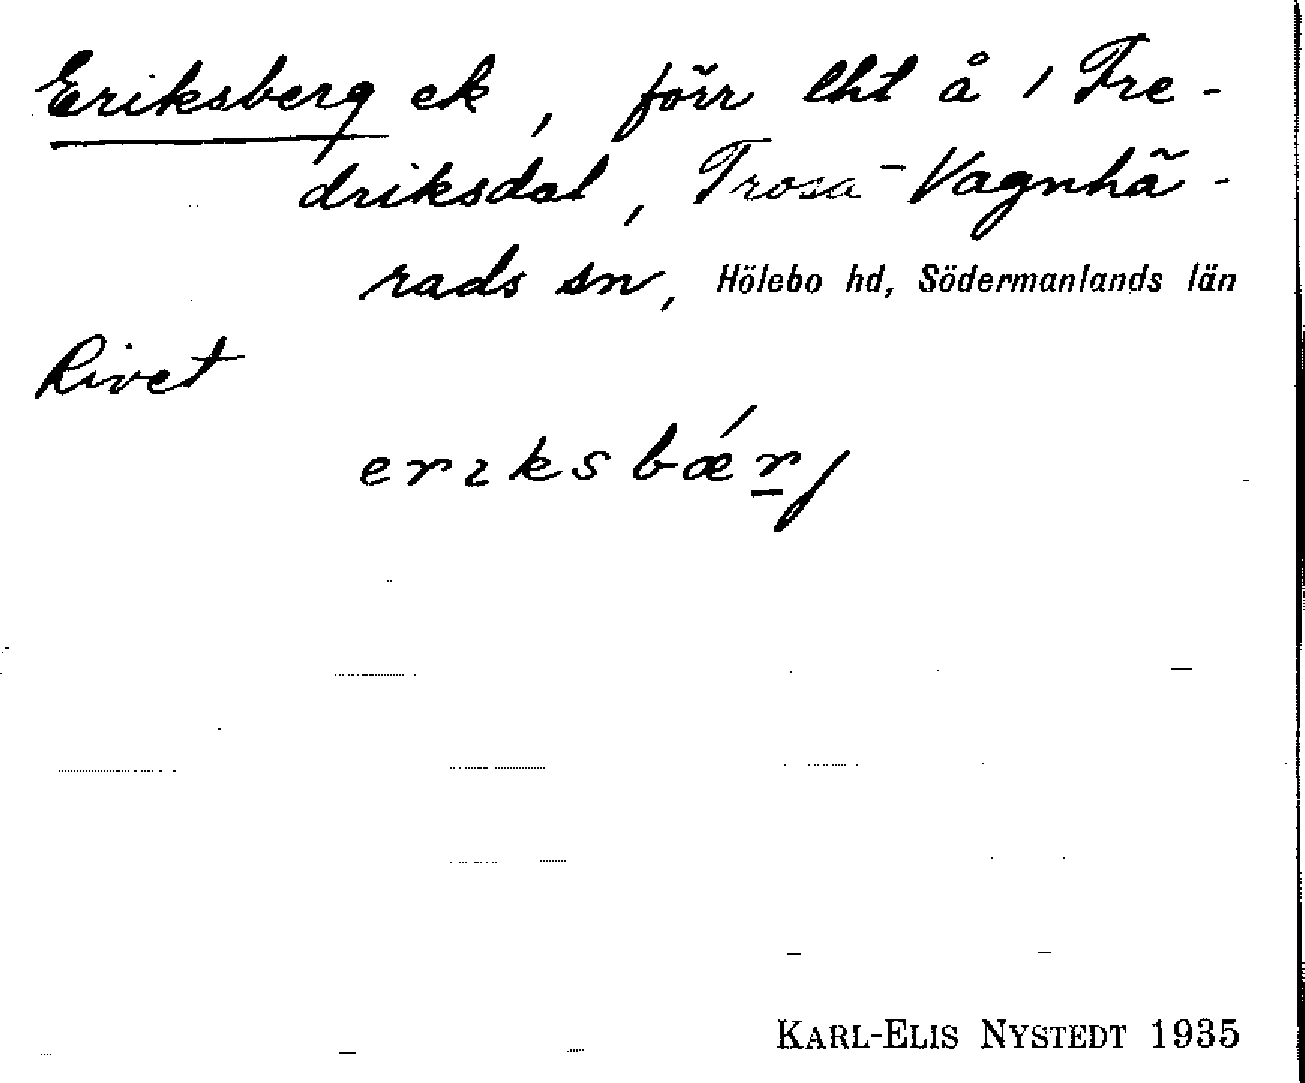 Eriksberg ek, förr lht å 1 Fre-
driksdal, Trosa-Vagnhä-
rads sn, Hölebo hd, Södermanlands län
Rivet
erıksbǽr̲j
KARL-ELIS NYSTEDT 1935